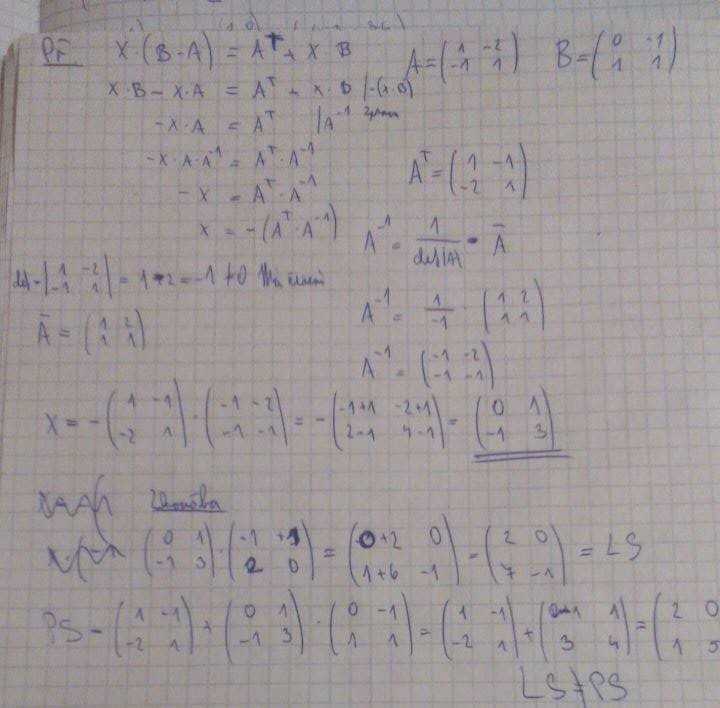 Př X·(B-A) = Aᵀ + X·B A = (1 -2; -1 1) B = (0 -1; 1 1)
X·B - X·A = Aᵀ + X·B |-(X·B)
-X·A = Aᵀ |A⁻¹
-X·A·A⁻¹ = Aᵀ·A⁻¹ Aᵀ = (1 -1; -2 1)
-X = Aᵀ·A⁻¹
X = -(Aᵀ·A⁻¹) A⁻¹ = 1/det|A| · Ā
det = |1 -2; -1 1| = 1-2 = -1 ≠ 0
Ā = (1 2; 1 1) A⁻¹ = 1/-1 · (1 2; 1 1)
A⁻¹ = (-1 -2; -1 -1)
X = -(1 -1; -2 1)·(-1 -2; -1 -1) = -(-1+1 -2+1; 2-1 4-1) = (0 1; -1 3)
Zkouška
(0 1; -1 3)·(-1 +1; 2 0) = (0+2 0; 1+6 -1) = (2 0; 7 -1) = LS
PS = (1 -1; -2 1) + (0 1; -1 3)·(0 -1; 1 1) = (1 -1; -2 1) + (0+1 1; 3 4) = (2 0; 1 5
LS ≠ PS